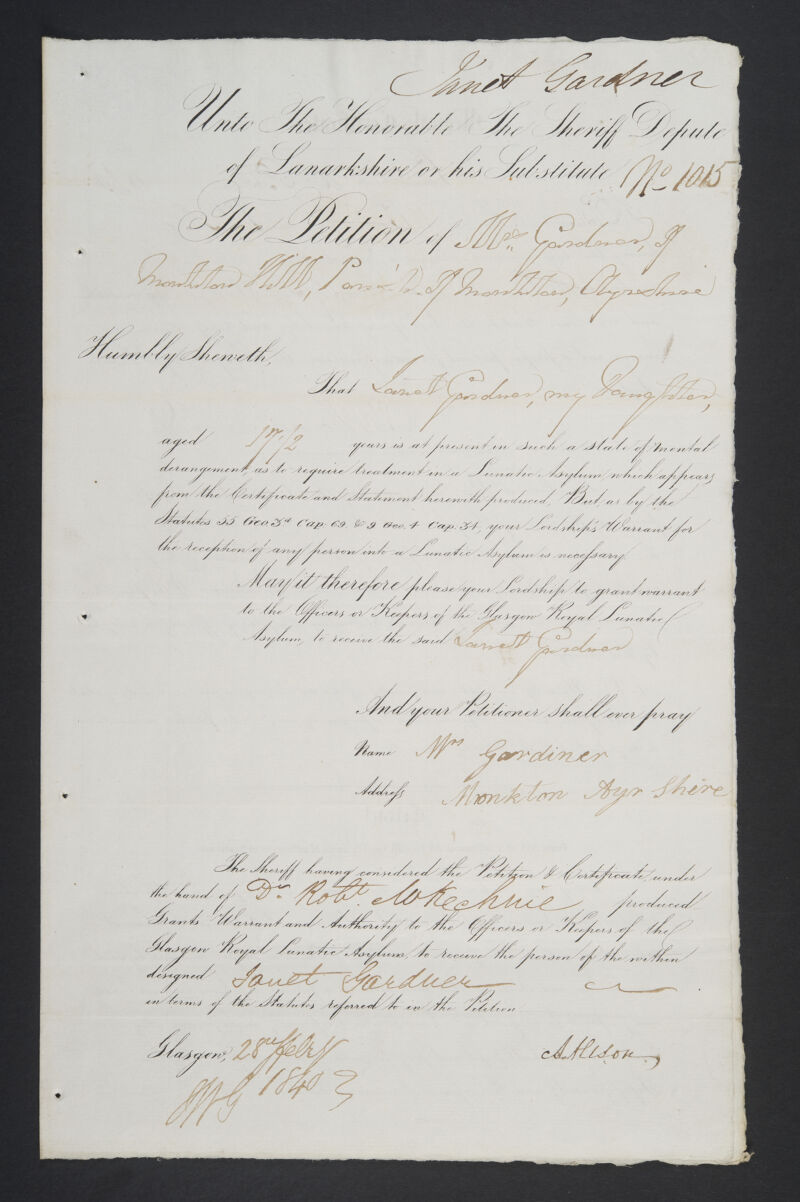 Janet Gardner
Unto The Honorable The Sheriff Depute
of Lanarkshire or his Substitute No 1015
The Petition of Mrs. Gardner, of
Monkton Hill, Parish of Monkton, Ayrshire
Humbly Sheweth,
That Janet Gardner, my Daughter,
aged 17 1/2 years is at present in such a state of mental
derangement, as to require treatment in a Lunatic Asylum, which appears
from the Certificate and Statement herewith produced. But, as by the
Statutes 55 Geo 3d Cap. 69 & 9 Geo. 4 Cap. 34, your Lordship's Warrant for
the reception of any person into a Lunatic Asylum is necessary
May it therefore please your Lordship to grant warrant
to the Officers or Keepers of the Glasgow Royal Lunatic
Asylum, to receive the said Janet Gardner
And your Petitioner shall ever pray
Name Mrs Gardiner
Address Monkton Ayr Shire
The Sheriff having considered the Petition & Certificate under
the hand of Dr. Robt. McKechnie produced
Grants Warrant and Authority to the Officers or Keepers of the
Glasgow Royal Lunatic Asylum, to receive the person of the within
designed Janet Gardner
in terms of the Statutes referred to in the Petition
Glasgow, 28 Feby A. Alison
1840